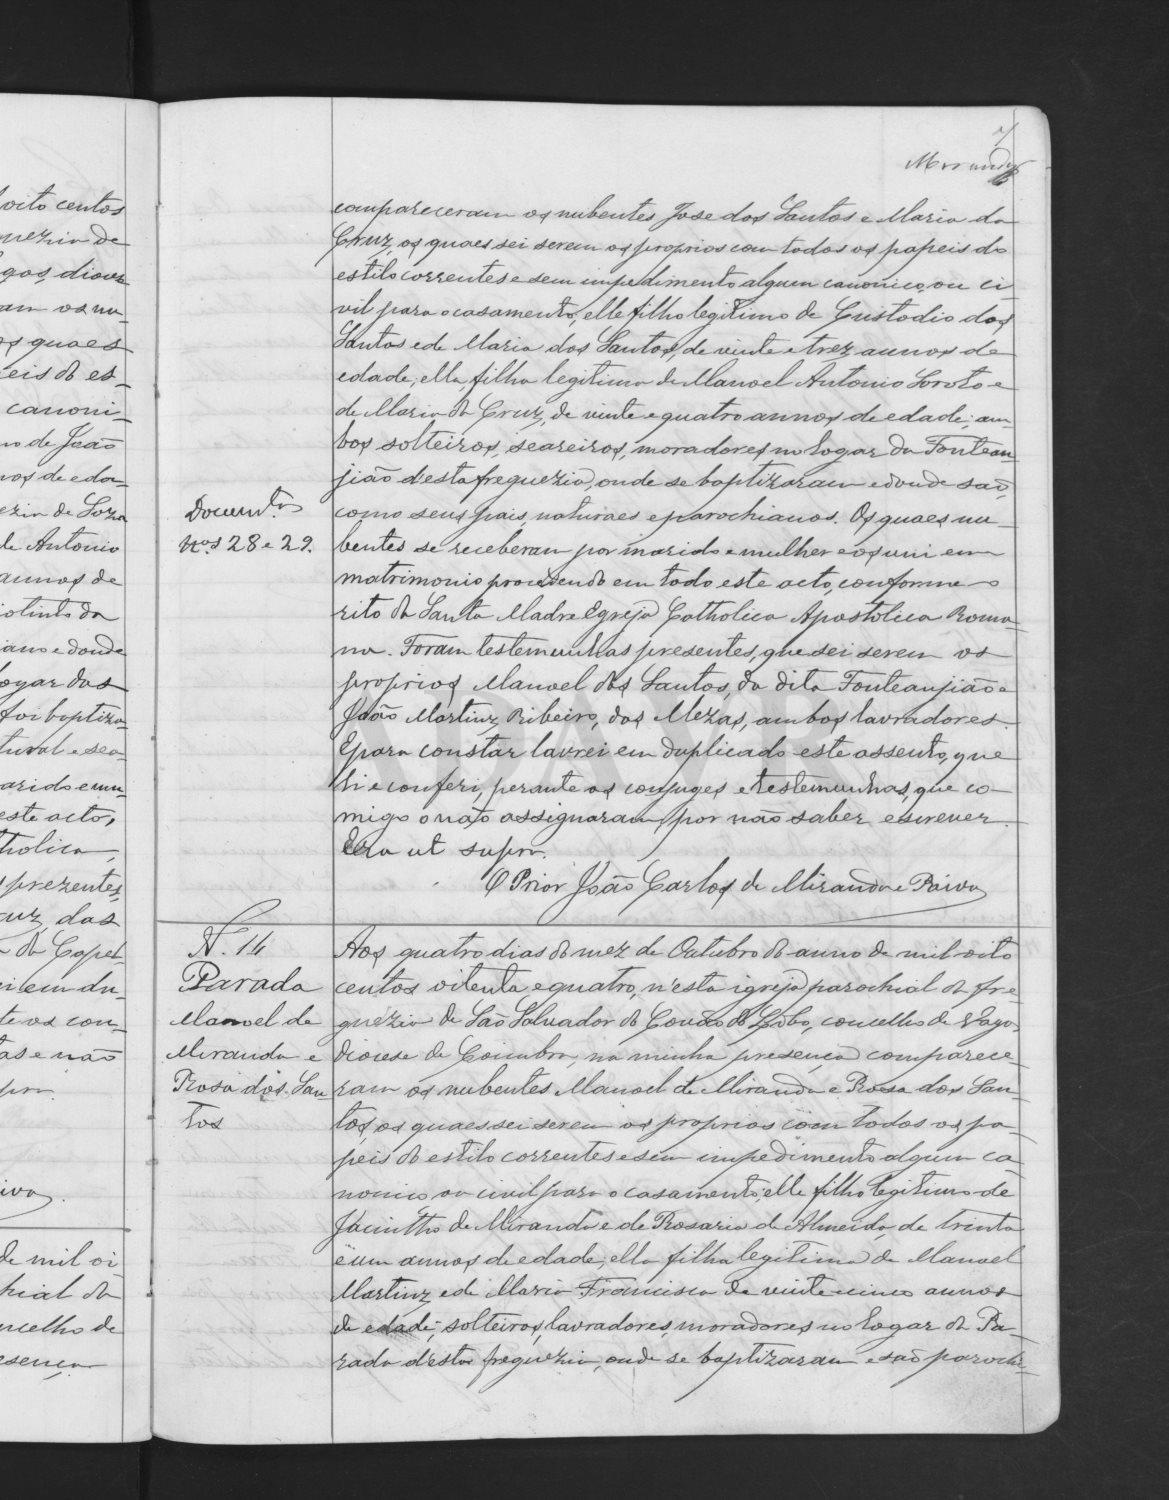 7
Miranda
compareceram os nubentes Jose dos Santos e Maria da
Cruz, os quaes sei serem os proprios com todos os papeis do
estilo correntes e sem impedimento algum canonico, ou ci
vil para o casamento, elle filho legitimo de Custodio dos
Santos e de Maria dos Santos, de vinte e trez annos de
edade, ella filha legitima de Manoel Antonio Loroto e
de Maria da Cruz, de vinte e quatro annos de edade, am
bos solteiros, seareiros, moradores no logar da Fontean-
jião d'esta freguezia, onde se baptizaram e donde são,
como seus pais, naturaes e parochianos. Os quaes nu-
bentes se receberam por marido e mulher e os uni em
matrimonio procedendo em todo este acto, conforme o
rito da Santa Madre Egreja Catholica Apostolica Roma-
na. Foram testemunhas presentes, que sei serem os
proprios Manoel dos Santos, da dita Fonteanjião e
João Martinz Ribeiro, das Mezas, ambos lavradores.
E para constar lavrei em duplicado este assento, que
li e conferi, perante os conjuges e testemunhas, que co-
migo o não assignaram, por não saber escrever.
Era ut supra.
O Prior João Carlos de Miranda e Paiva
Documtos
Nos 28 e 29.
N. 14
Parada
Manoel de
Miranda e
Rosa dos San
tos
Aos quatro dias do mez de Outubro do anno de mil oito
centos oitenta e quatro, n'esta igreja parochial da fre-
guezia de São Salvador do Covão do Lobo, concelho de Vagos,
diocese de Coimbra, na minha presença comparece-
ram os nubentes Manoel de Miranda e Rosa dos San-
tos, os quaes sei serem os proprios com todos os pa-
peis do estilo correntes e sem impedimento algum ca-
nonico, ou civil para o casamento, elle filho legitimo de
Jacintho de Miranda e de Rosaria de Almeida, de trinta
e um annos de edade, ella filha legitima de Manoel
Martinz e de Maria Francisca de vinte e cinco annos
de edade, solteiros, lavradores, moradores no logar da Pa-
rada d'esta freguezia, onde se baptizaram e são parochi-
oito centos
guezia de
gos, dioce
am os nu-
os quaes
eis do es-
canoni-
no de João
nos de eda-
ezia de Soza
de Antonio
annos de
iano e donde
logar das
foi baptiza-
tural e sea-
arido e mu-
este acto,
tholica,
presentes,
cruz, das
ei em du-
te os con-
tas e não
pra.
aiva.
de mil oi-
hial do
ncelho de
esença